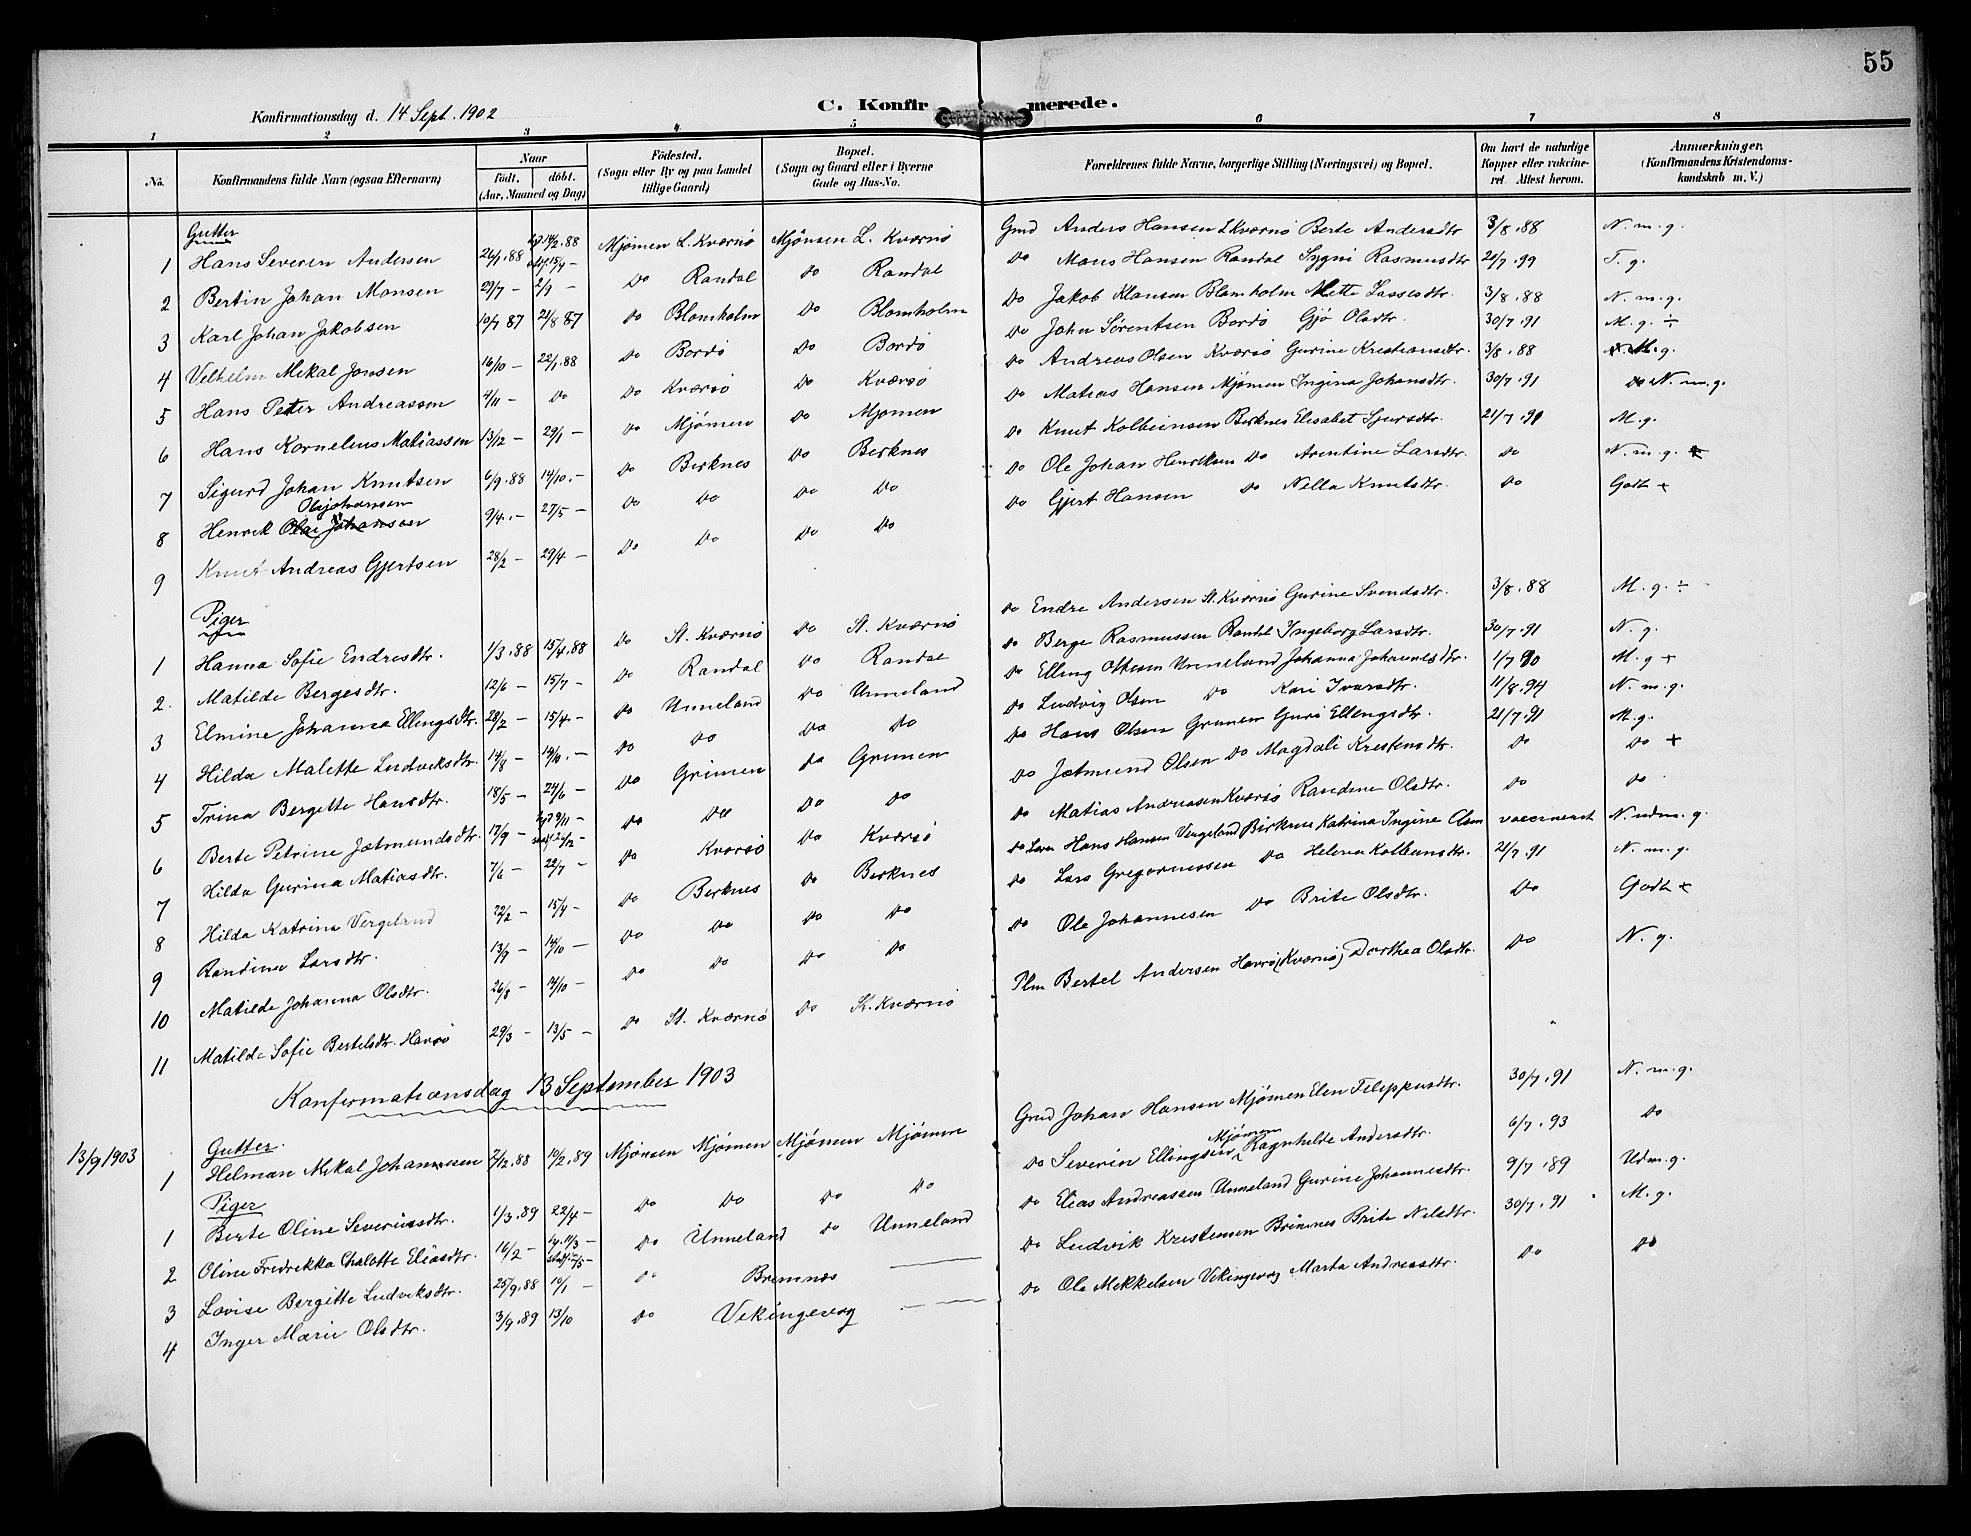 55
C. Konfirmerede.
Konfirmationsdag d. 14 Sept. 1902
1 2 3 4 5 6 7 8
No. Konfirmandens fulde Navn (ogsaa Efternavn) Naar født. døbt. (Aar, Maaned og Dag) Fødested. (Sogn eller By og paa Landet tillige Gaard) Bopæl. (Sogn og Gaard eller i Byerne Gade og Hus-No. Forældrenes fulde Navne, borgerlige Stilling (Næringsvei) og Bopæl. Om havt de naturlige Kopper eller vaccineret. Attest herom. Anmærkninger. (Konfirmandens Kristendomskundskab m. V.)
Gutter
1 Hans Severin Andersen 26/1.88 14/2.88 Mjømen L. Kværnø Mjömen L. Kværnø Gmd Anders Hansen L Kværnø Berte Andersdtr 3/8.88 N. m. g.
2 Bertin Johan Monsen 29/7 - 2/9 - Do Randal Do Randal Do Mons Hansen Randal Sygni Rasmusdtr 20/7.99 T. g.
3 Karl Johan Jakobsen 10/7 87 21/8 87 Do Blomholm Do Blomholm Do Jakob Klausen Blomholm Mette Lassesdtr. 3/8.88 N. m. g.
4 Velhelm Mikal Jonsen 16/10 - 22/1.88 Do Bordö Do Bordö Do John Sörentsen Bordö Gjö Olsdtr. 30/7.91 M. g. ÷
5 Hans Peter Andreassen 4/11 - Do Do Kværsö Do Kværsö Do Andreas Olsen Kværsö Gurine Kristiansdtr. 3/8.88 M. g.
6 Hans Kornelius Matiassen 13/12 - 29/1 - Do Mjömen Do Mjömen Do Matias Hansen Mjömen Ingina Johansdtr. 30/7.91 N. m. g.
7 Sigurd Johan Knutsen 6/9.88 14/10.- Do Berknes Do Berknes Do Knut Kolbeinsen Berknes Elisabet Sjursdtr. 21/7.91 M. g.
Olajohansen
8 Henrik Olai Johansen 9/4.- 27/5 - Do Do Do Do Do Ole Johan Henriksen Do Arentine Larsdtr. Do N. m. g.
9 Knut Andreas Gjertsen 28/2 - 29/4 - Do Do Do Do Do Gjert Hansen Do Nella Knutsdtr. Do Godt +
Piger
1 Hanna Sofie Endresdtr. 1/3.88 15/4.88 Do St. Kværnö Do St. Kværnö Do Endre Andersen St. Kværnö Gurine Svendsdtr. 3/8.88 M. g. ÷
2. Matilde Bergesdtr. 12/6 - 15/7 - Do Randal Do Randal Do Berge Rasmussen Randal Ingeborg Larsdtr. 30/7.91 N. g.
3 Elmine Johanna Ellingsdtr. 28/2 - 15/4 - Do Unneland Do Unneland Do Elling Ottesen Unneland Johanna Johannesdtr. 1/7 90 M. g +
4 Hilda Malette Ludviksdtr. 14/8 - 14/10.- Do Do Do Do Do Ludvig Olsen Do Kari Ivarsdtr. 11/8.94 N. m. g.
5 Trina Bergette Hansdtr. 18/5 - 24/6 - Do Grimen Do Grimen Do Hans Olsen Grimen Guri Ellingsdtr. 21/7.91 M. g.
6 Berte Petrine Jetmundsdtr. 17/9 - 9/11 - Do Do Do Do Do Jetmund Olsen Do Magdali Kristensdtr. Do Do +
7 Hilda Gurina Matiasdtr. 7/6 - 22/7 - Do Kværsö Do Kværsö Do Matias Andreasen Kværsö Randine Olsdtr. Do Do
8 Hilda Katrina Vergeland 22/2 - 15/4 - Do Berknes Do Berknes Do Hans Hansen Vergeland Birknes Katrina Ingine Olsen vaccineret N. udm. g.
9 Randine Larsdtr. 13/9 - 14/10 - Do Do Do Do Do Lars Gregoriussen Do Helena Kolbeinsdtr. 21/7.91 N. m. g.
10 Matilde Johanna Olsdtr. 26/8 - 14/10 - Do Do Do Do Do Ole Johannesen Do Brite Olsdtr. Do Godt +
11 Matilde Sofie Bertelsdtr. Havrö 29/3 - 13/5 - Do St. Kværnö Do St. Kværnö Plm Bertel Andersen Havrö (Kværnö) Dorthea Olsdtr. Do N. g.
Konfirmationsdag 13 September 1903
13/9 1903 Gutter.
1 Helman Mikal Johannesen 2/12.88 10/2.89 Mjömen Mjömen Mjömen Mjömen Gmd Johan Hansen Mjömen Elen Filippusdtr. 30/7.91 N. m. g.
Piger
1 Berte Oline Severinsdtr. 1/3.89 22/4 - Do Do Do Do Do Severin Ellingsen Mjömen Ragnhilde Andersdtr. 6/7.93 Do
2 Oline Fredrekka Chalotte Eliasdtr. 16/2 - 11/3 - Do Unneland Do Unneland Do Elias Andreassen Unneland Gurine Johannesdtr. 9/7.89 Udm. g.
3 Lovise Bergitte Ludviksdtr. 25/9.88 10/1 - Do Bremnes Do Ludvik Kristensen Brimnes Brite Nilsdtr. 30/7.91 M. g.
4 Inger Marie Olsdtr. 3/9.89 13/10 Do Vekingevog Do Ole Mekkelsen Vekingevog Marta Andreasdtr. Do Do